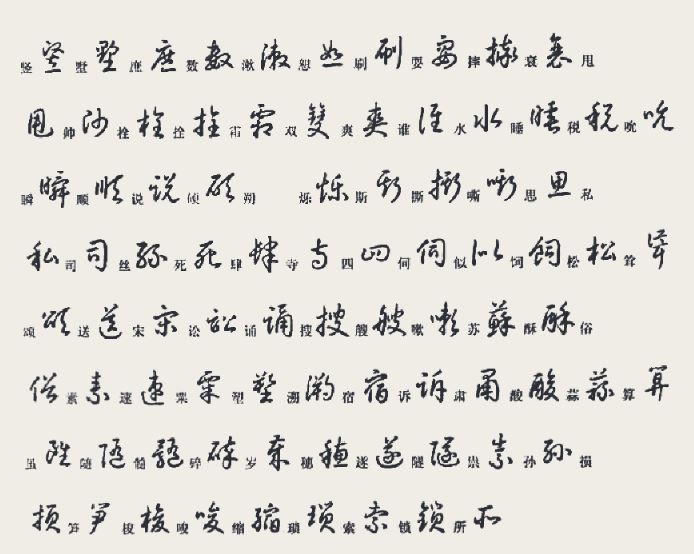 竖 豎 墅 墅 庶 庶 数 數 漱 漱 恕 恕 刷 刷 耍 耍 摔 摔 衰 衰 甩
甩 帅 帥 栓 栓 拴 拴 霜 霜 双 雙 爽 爽 谁 誰 水 水 睡 睡 税 税 吮 吮
瞬 瞬 顺 順 说 説 硕 碩 朔 烁 爍 斯 斯 撕 撕 嘶 嘶 思 思 私
私 司 司 丝 絲 死 死 肆 肆 寺 寺 四 四 伺 伺 似 似 饲 飼 松 松 耸 聳
颂 頌 送 送 宋 宋 讼 訟 诵 誦 搜 搜 艘 艘 嗽 嗽 苏 蘇 酥 酥 俗
俗 素 素 速 速 粟 粟 塑 塑 溯 溯 宿 宿 诉 訴 肃 肅 酸 酸 蒜 蒜 算 算
虽 雖 随 隨 髓 髓 碎 碎 岁 歲 穗 穗 遂 遂 隧 隧 祟 祟 孙 孫 损
損 笋 笋 梭 梭 唆 唆 缩 縮 琐 瑣 索 索 锁 鎖 所 所